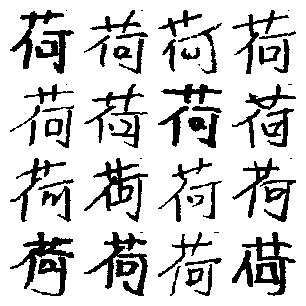 荷荷荷荷
荷荷荷荷
荷荷荷荷
荷荷荷荷